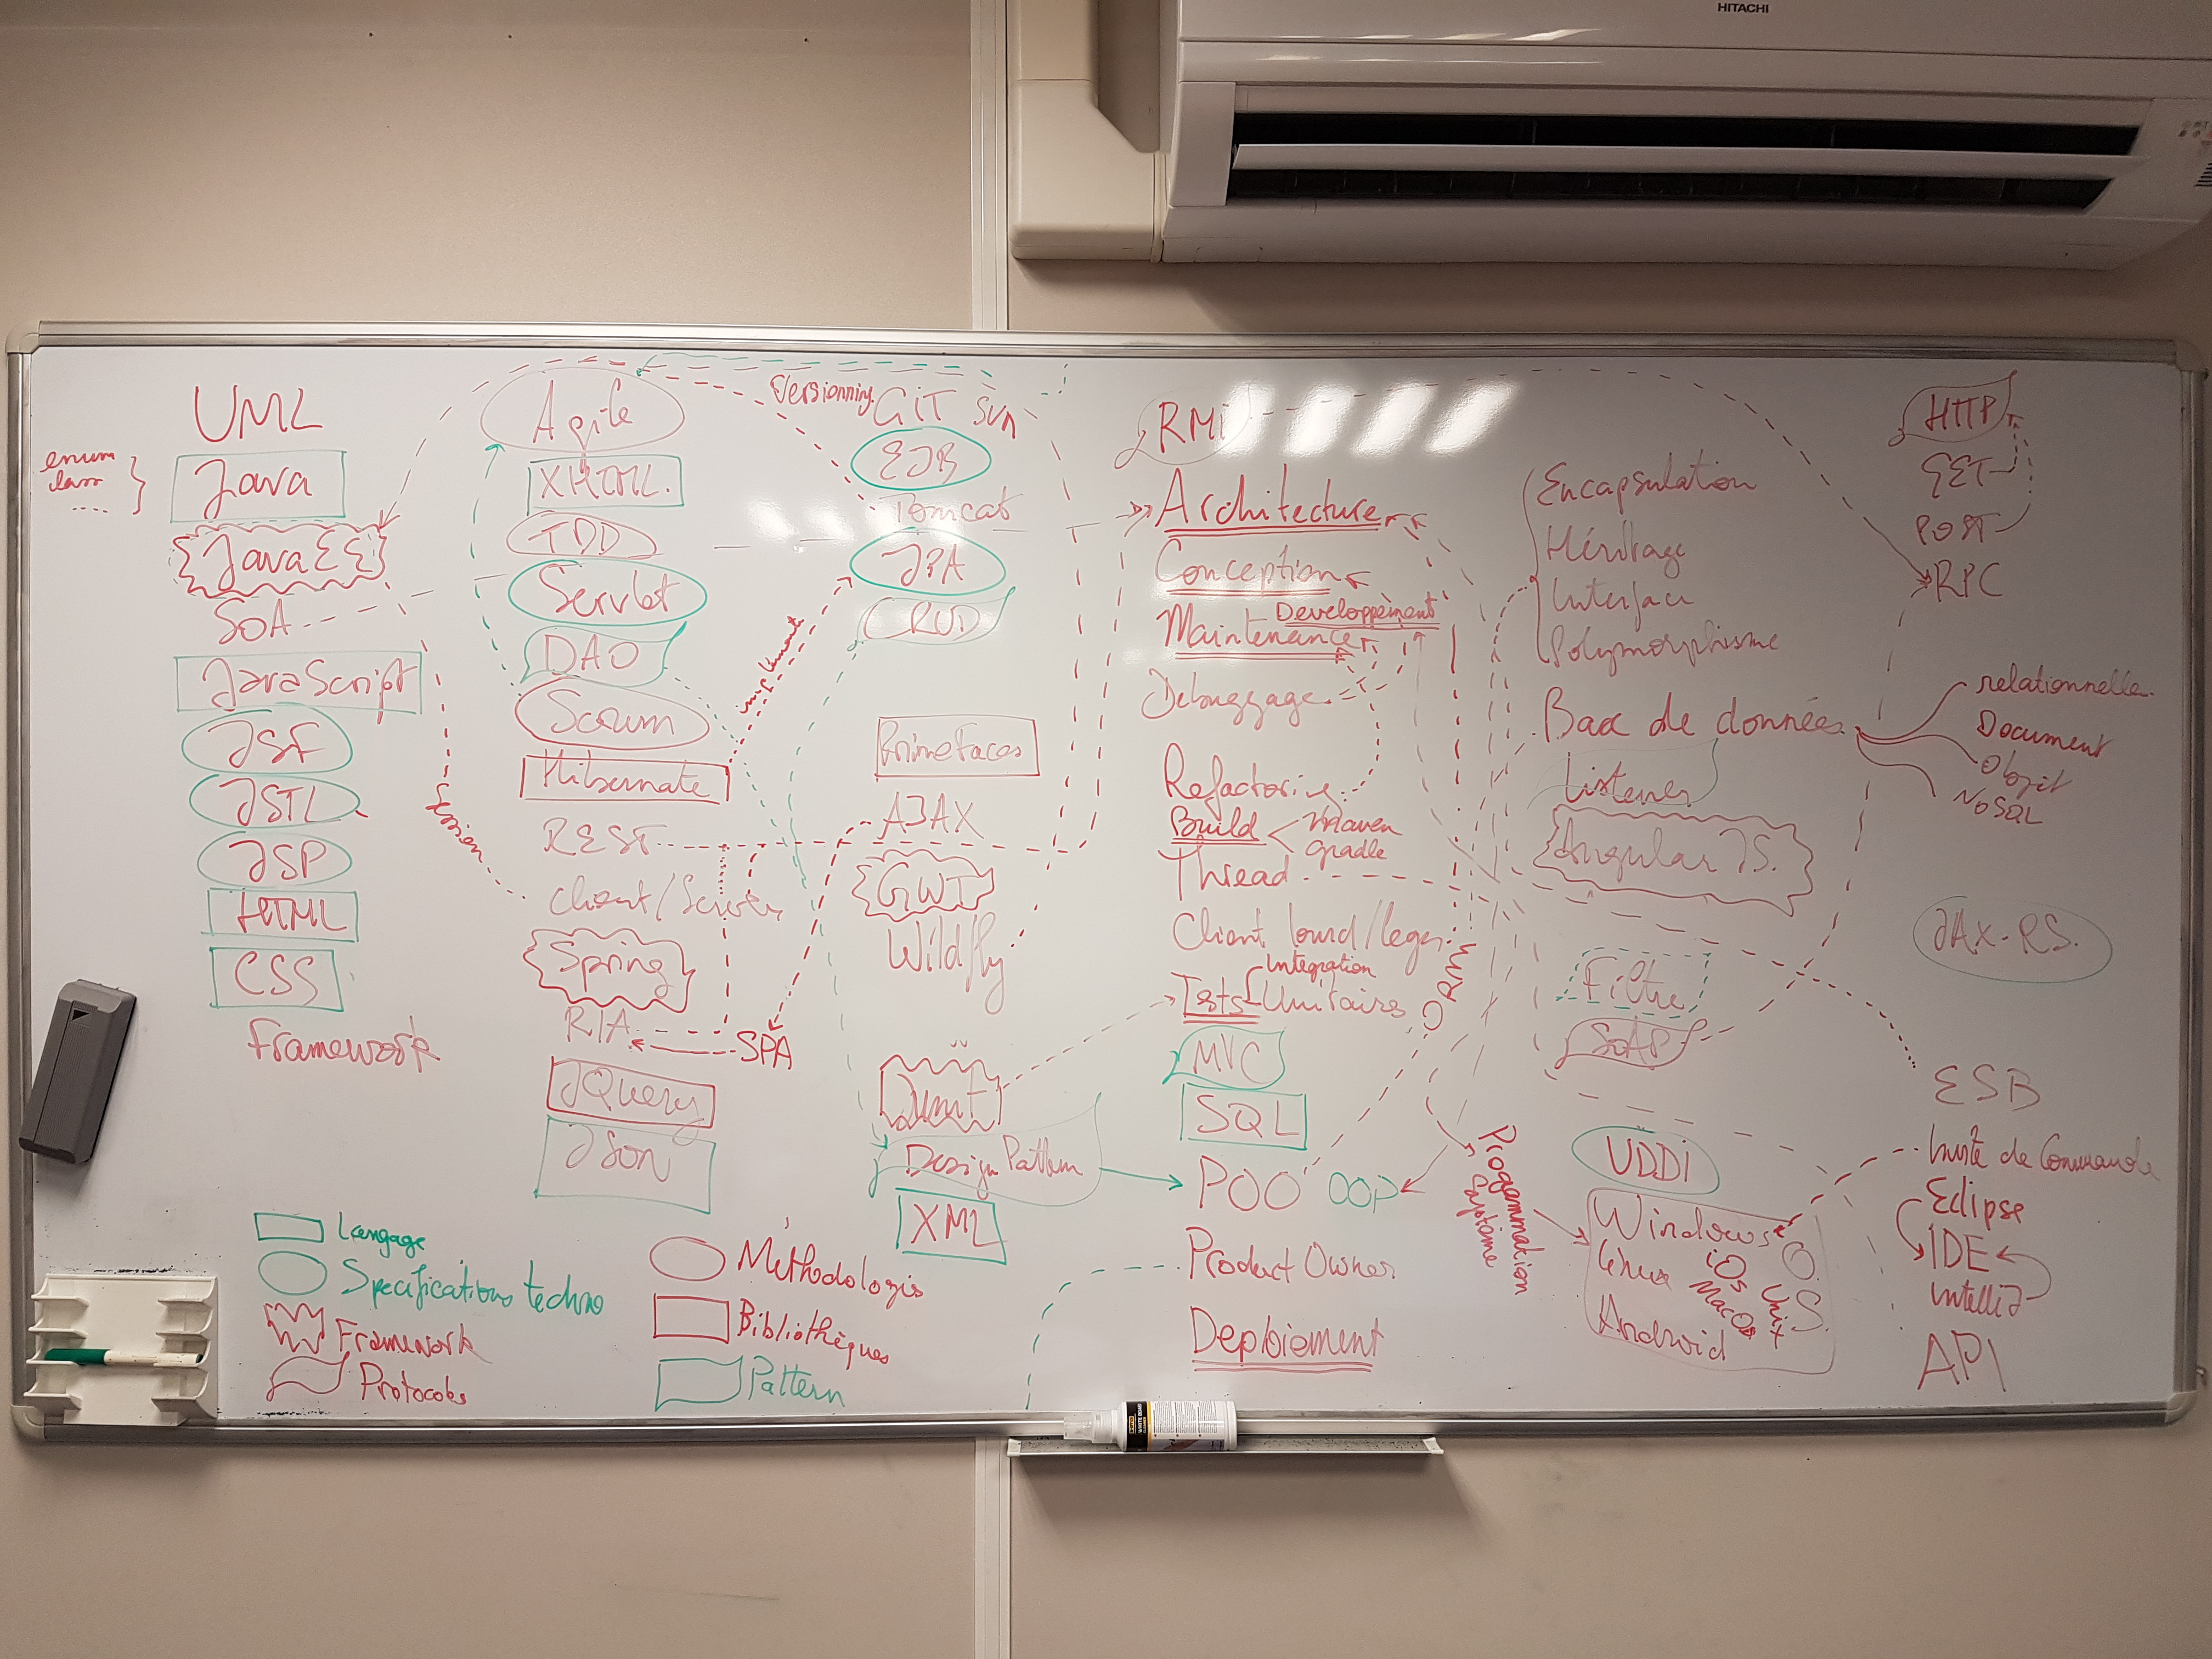 HITACHI
UML
enum
class
....
Java
JavaEE
SOA
JavaScript
JSF
JSTL
JSP
HTML
CSS
Framework
Session
Agile
XHTML
TDD
Servlet
DAO
Scrum
Hibernate
implémente
REST
Client/Server
Spring
RIA
SPA
JQuery
JSON
Versionning
GIT SVN
EJB
Tomcat
JPA
CRUD
PrimeFaces
AJAX
GWT
Wildfly
JUnit
Design Pattern
XML
RMI
Architecture
Conception
Developpement
Maintenance
Debuggage
Refactoring
Build
Maven
gradle
Thread
Client lourd/leger
Integration
Tests Unitaires
ORM
MVC
SQL
POO OOP
Product Owner
Deploiement
Programmation
Système
Encapsulation
Héritage
Interface
Polymorphisme
Base de données
relationnelle
Document
Objet
NoSQL
Listener
Angular JS.
Filtre
SOAP
UDDI
Windows
Linux
Android
iOS
MacOS
Unix
O.S.
HTTP
GET
POST
RPC
JAX-RS.
ESB
Invite de Commande
Eclipse
IDE
IntelliJ
API
Langage
Specifications techno
Framework
Protocoles
Methodologies
Bibliothèques
Pattern